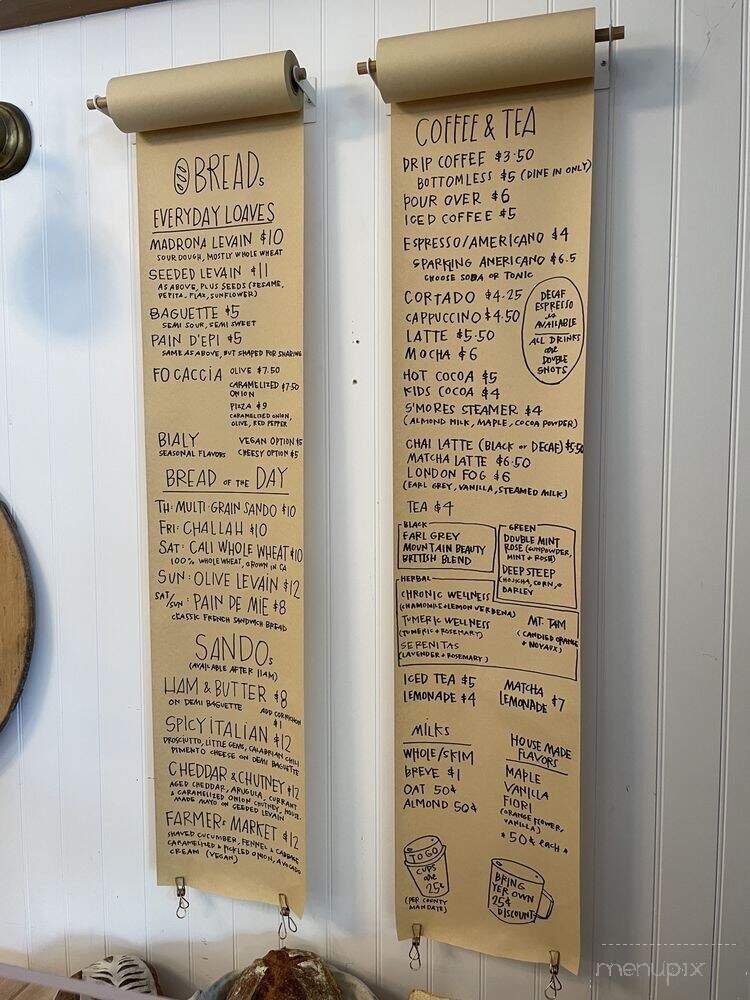 BREADs
EVERYDAY LOAVES
MADRONA LEVAIN $10
SOUR DOUGH, MOSTLY WHOLE WHEAT
SEEDED LEVAIN $11
AS ABOVE, PLUS SEEDS (SESAME,
PEPITA, FLAX, SUNFLOWER)
BAGUETTE $5
SEMI SOUR, SEMI SWEET
PAIN D'EPI $5
SAME AS ABOVE, BUT SHAPED FOR SHARING
FOCACCIA OLIVE $7.50
CARAMELIZED $7.50
ONION
PIZZA $9
CARAMELIZED ONION,
OLIVE, RED PEPPER
BIALY VEGAN OPTION $5
SEASONAL FLAVORS CHEESY OPTION $5
BREAD OF THE DAY
TH: MULTI-GRAIN SANDO $10
FRI: CHALLAH $10
SAT: CALI WHOLE WHEAT $10
100% WHOLE WHEAT, GROWN IN CA
SUN: OLIVE LEVAIN $12
SAT/SUN: PAIN DE MIE $8
CLASSIC FRENCH SANDWICH BREAD
SANDOs
(AVAILABLE AFTER 11AM)
HAM & BUTTER $8
ON DEMI BAGUETTE ADD CORNICHON
$1
SPICY ITALIAN $12
PROSCIUTTO, LITTLE GEMS, CALABRIAN CHILI
PIMENTO CHEESE ON DEMI BAGUETTE
CHEDDAR & CHUTNEY $12
AGED CHEDDAR, ARUGULA, CURRANT
& CARAMELIZED ONION CHUTNEY, HOUSE
MADE MAYO ON SEEDED LEVAIN
FARMERs MARKET $12
SHAVED CUCUMBER, FENNEL & CABBAGE
CARAMELIZED & PICKLED ONION, AVOCADO
CREAM (VEGAN)
COFFEE & TEA
DRIP COFFEE $3.50
BOTTOMLESS $5 (DINE IN ONLY)
POUR OVER $6
ICED COFFEE $5
ESPRESSO/AMERICANO $4
SPARKLING AMERICANO $6.5
CHOOSE SODA OR TONIC
CORTADO $4.25
CAPPUCCINO $4.50
LATTE $5.50
MOCHA $6
DECAF
ESPRESSO
is
AVAILABLE
ALL DRINKS
are
DOUBLE
SHOTS
HOT COCOA $5
KIDS COCOA $4
S'MORES STEAMER $4
(ALMOND MILK, MAPLE, COCOA POWDER)
CHAI LATTE (BLACK OR DECAF) $5.50
MATCHA LATTE $6.50
LONDON FOG $6
(EARL GREY, VANILLA, STEAMED MILK)
TEA $4
BLACK
EARL GREY
MOUNTAIN BEAUTY
BRITISH BLEND
GREEN
DOUBLE MINT
ROSE (GUNPOWDER,
MINT + ROSE)
DEEP STEEP
(HOJICHA, CORN, &
BARLEY
HERBAL
CHRONIC WELLNESS
(CHAMOMILE + LEMON VERBENA)
TUMERIC WELLNESS
(TUMERIC + ROSEMARY)
SERENITAS
(LAVENDER + ROSEMARY)
MT. TAM
(CANDIED ORANGE
ICED TEA $5
LEMONADE $4
MATCHA
LEMONADE $7
MILKS
WHOLE/SKIM
BREVE $1
OAT 50¢
ALMOND 50¢
HOUSE MADE
FLAVORS
MAPLE
VANILLA
FIORI
(ORANGE FLOWER,
VANILLA)
* 50¢ EACH *
TO GO
CUPS
are
25¢
(PER COUNTY
MANDATE)
BRING
YER OWN
25¢
DISCOUNT
menupix